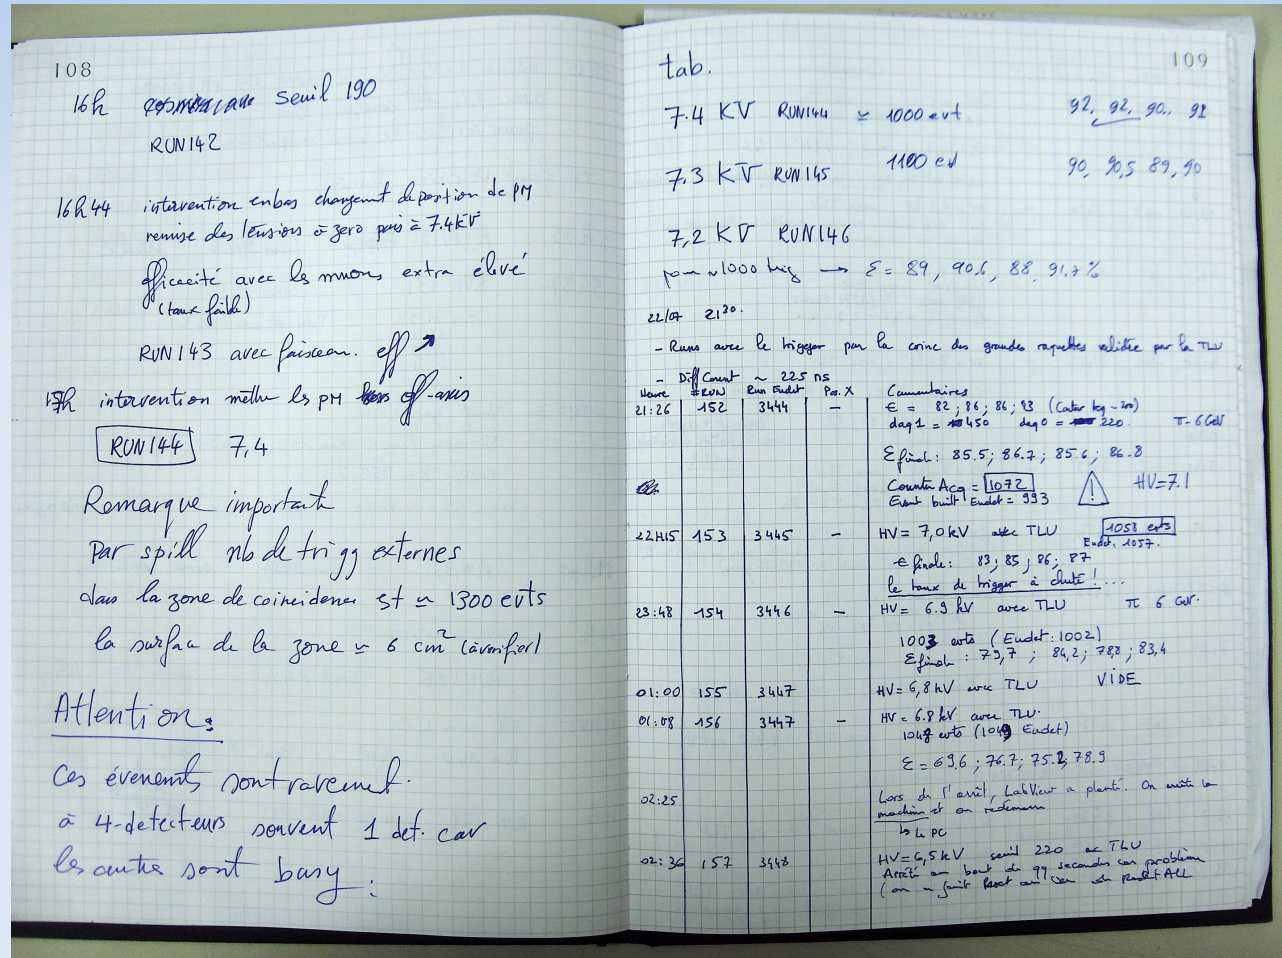 108
16h seuil 190
RUN142
16h44 intervention en bas changement de position de PM
remise des tensions à zero puis à 7.4KV
efficacité avec les muons extra élevé
(taux faible)
RUN143 avec faisceau. eff ↗
17h intervention mettre les PM off-axis
RUN144 7,4
Remarque importante
Par spill nb de trigg externes
dans la zone de coincidence est ≃ 1300 evts
la surface de la zone ≃ 6 cm² (à verifier)
Attention:
ces évenements sont rarement
à 4-detecteurs souvent 1 det. car
les autres sont busy :
109
tab.
7.4 KV RUN144 ≃ 1000 evt 92, 92, 90.. 91
7.3 KV RUN145 1100 evt 90, 90,5 89, 90
7,2 KV RUN146
pour ~1000 trig → ε = 89, 90.6, 88, 91.7 %
22/07 21³⁰.
- Runs avec le trigger par la coinc des grandes raquettes validée par la TLU
- Diff Count ~ 225 ns
Heure #RUN Run Eudet Pos. X Commentaires
21:26 152 3444 – ε = 82 ; 86 ; 86 ; 83
daq1 = 450 daq0 = 220 π- 6 GeV
ε finale : 85.5 ; 86.7 ; 85.6 ; 86.8
Counter Acq = 1072 HV=7.1
Event built Eudet = 993
22H15 153 3445 – HV = 7,0 kV avec TLU 1058 evts
Eudet. 1057.
ε finale : 83 ; 85 ; 86 ; 87
le taux de trigger à chuté ! ...
23:48 154 3446 – HV = 6.9 kV avec TLU π 6 GeV.
1003 evts (Eudet : 1002)
ε finale : 79,7 ; 84,2 ; 78,8 ; 83,4
01:00 155 3447 HV = 6,8 kV avec TLU VIDE
01:08 156 3447 – HV = 6.8 kV avec TLU.
1048 evts (1049 Eudet)
ε = 69.6 ; 76.7 ; 75.2 ; 78.9
02:25 Lors de l'arrêt, LabView a planté. On arrête la
machine et on redémarre
↳ le PC
02:36 157 3448 HV = 6,5 kV seuil 220 ac TLU
Arrêté au bout de 99 secondes car problème
(on a fait Reset au lieu de Reset ALL